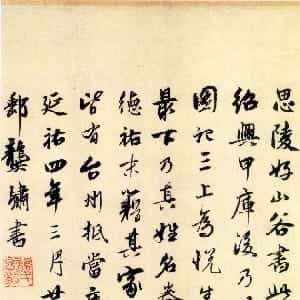 思陵好山谷書此
紹興甲庫後乃
圖記三上為悅生
最下乃其姓名卷
德祐末籍其家
皆有台州抵當庫
延祐四年三月廿
郵龔璛書